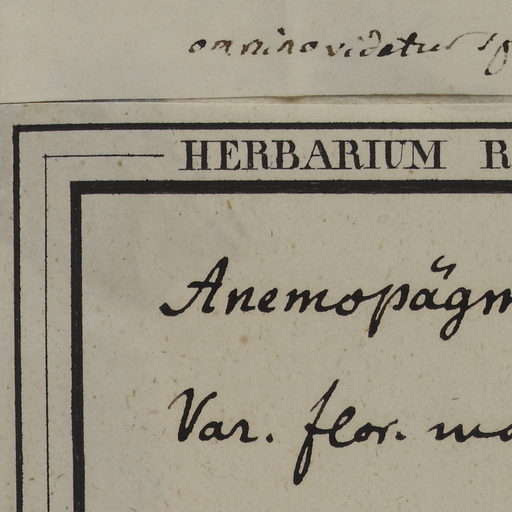 omnino videtur sp
HERBARIUM R
Anemopägm
Var. flor. ma